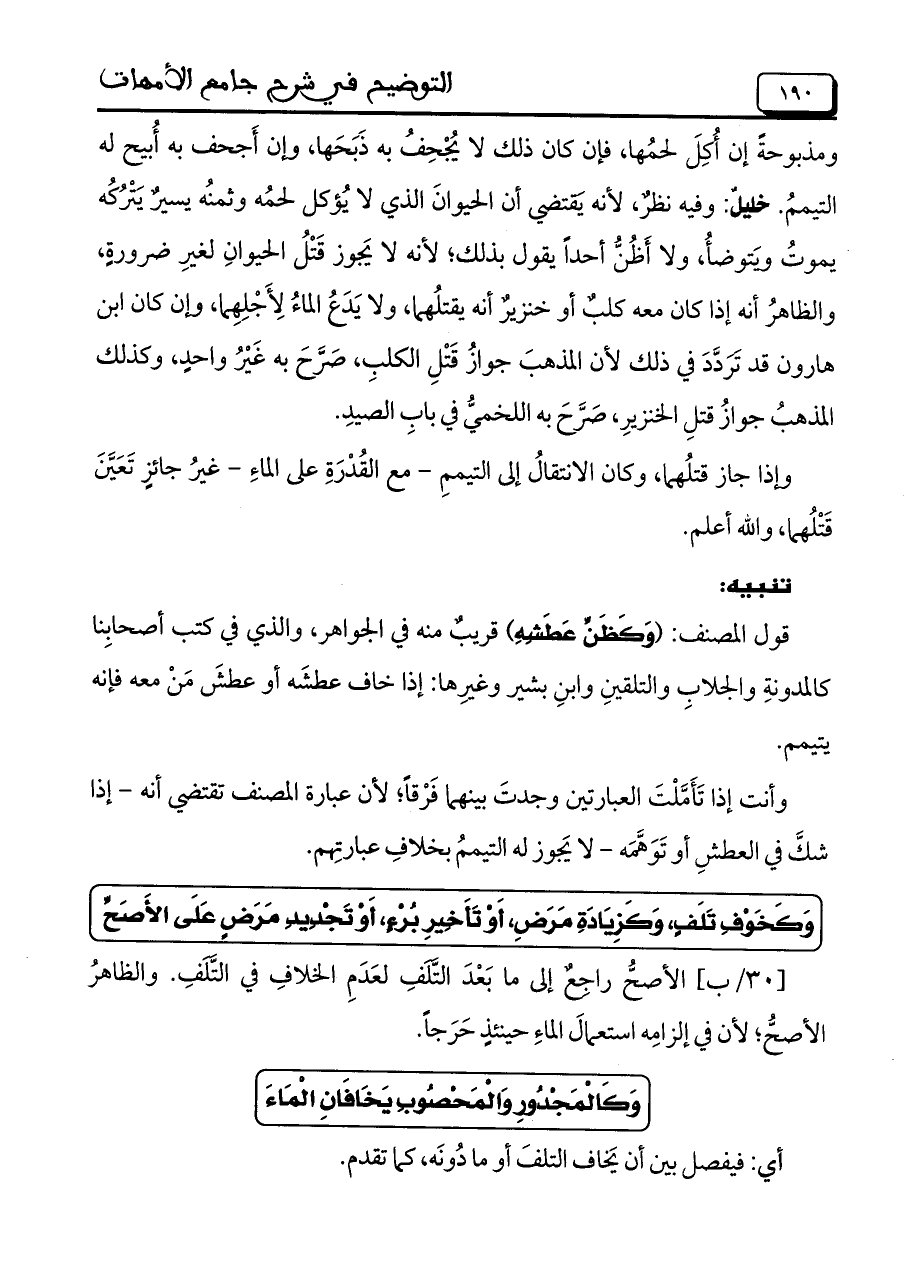 ١٩٠
التوضيح في شرح جامع الأمهات
ومذبوحةً إن أُكِلَ لحمُها، فإن كان ذلك لا يُجْحِفُ به ذَبَحَها، وإن أَجحف به أُبيح له
التيممُ. خليلٌ: وفيه نظرٌ، لأنه يَقتضي أن الحيوانَ الذي لا يُؤكل لحمُه وثمنُه يسيرٌ يَتْرُكُه
يموتُ ويَتوضأُ، ولا أَظُنُّ أحداً يقول بذلك؛ لأنه لا يَجوز قَتْلُ الحيوانِ لغيرِ ضرورةٍ،
والظاهرُ أنه إذا كان معه كلبٌ أو خنزيرٌ أنه يقتلُهما، ولا يَدَعُ الماءُ لِأَجْلِهِما، وإن كان ابن
هارون قد تَرَدَّدَ في ذلك لأن المذهبَ جوازُ قَتْلِ الكلبِ، صَرَّحَ به غَيْرُ واحدٍ، وكذلك
المذهبُ جوازُ قتلِ الخنزيرِ، صَرَّحَ به اللخميُّ في بابِ الصيدِ.
وإذا جاز قتلُهما، وكان الانتقالُ إلى التيممِ – مع القُدْرَةِ على الماءِ – غيرُ جائزٍ تَعَيَّنَ
قَتْلُهما، والله أعلم.
تنبيه:
قول المصنف: (وَكَظَنِّ عَطَشِهِ) قريبٌ منه في الجواهر، والذي في كتب أصحابِنا
كالمدونةِ والجلابِ والتلقينِ وابنِ بشير وغيرِها: إذا خاف عطشَه أو عطشَ مَنْ معه فإنه
يتيمم.
وأنت إذا تَأَمَّلْتَ العبارتين وجدتَ بينهما فَرْقاً؛ لأن عبارة المصنف تقتضي أنه – إذا
شكَّ في العطشِ أو تَوَهَّمَه – لا يَجوز له التيممُ بخلافِ عبارتِهم.
وَكَخَوْفِ تَلَفٍ، وَكَزِيَادَةِ مَرَضٍ، أَوْ تَأْخِيرِ بُرْءٍ، أَوْ تَجْدِيدِ مَرَضٍ عَلَى الأَصَحِّ
[٣٠/ ب] الأصحُّ راجِعٌ إلى ما بَعْدَ التَّلَفِ لعَدَمِ الخلافِ في التَّلَفِ. والظاهرُ
الأصحُّ؛ لأن في إلزامِه استعمالَ الماءِ حينئذٍ حَرَجاً.
وَكَالْمَجْدُورِ وَالْمَحْصُوبِ يَخَافَانِ الْمَاءَ
أي: فيفصل بين أن يَخاف التلفَ أو ما دُونَه، كما تقدم.